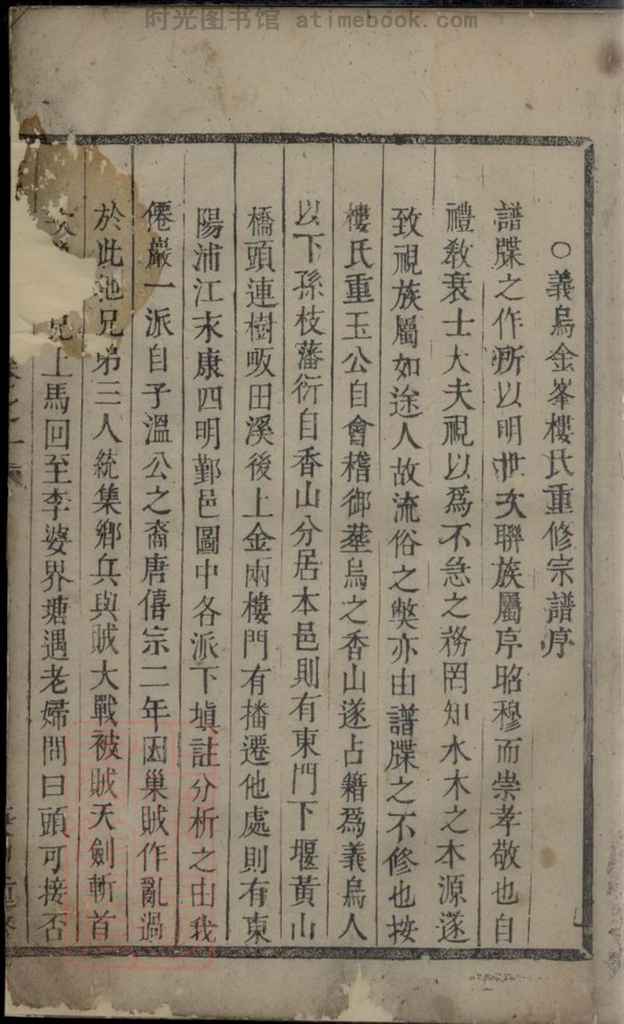 时光图书馆 atimebook.com
○義烏金峯樓氏重修宗譜序
譜牒之作所以明世次聯族屬序昭穆而崇孝敬也自
禮教衰士大夫視以爲不急之務罔知水木之本源遂
致視族屬如途人故流俗之獘亦由譜牒之不修也按
樓氏重玉公自會稽御葬烏之香山遂占籍爲義烏人
以下孫枝藩衍自香山分居本邑則有東門下堰黃山
橋頭連樹畈田溪後上金兩樓門有播遷他處則有東
陽浦江末康四明鄞邑圖中各派下塡註分析之由我
僊巖一派自子溫公之裔唐僖宗二年因巢賊作亂過
於此地兄弟三人統集鄉兵與賊大戰被賊天劍斬首
兄上馬回至李婆界塘遇老婦問曰頭可接否